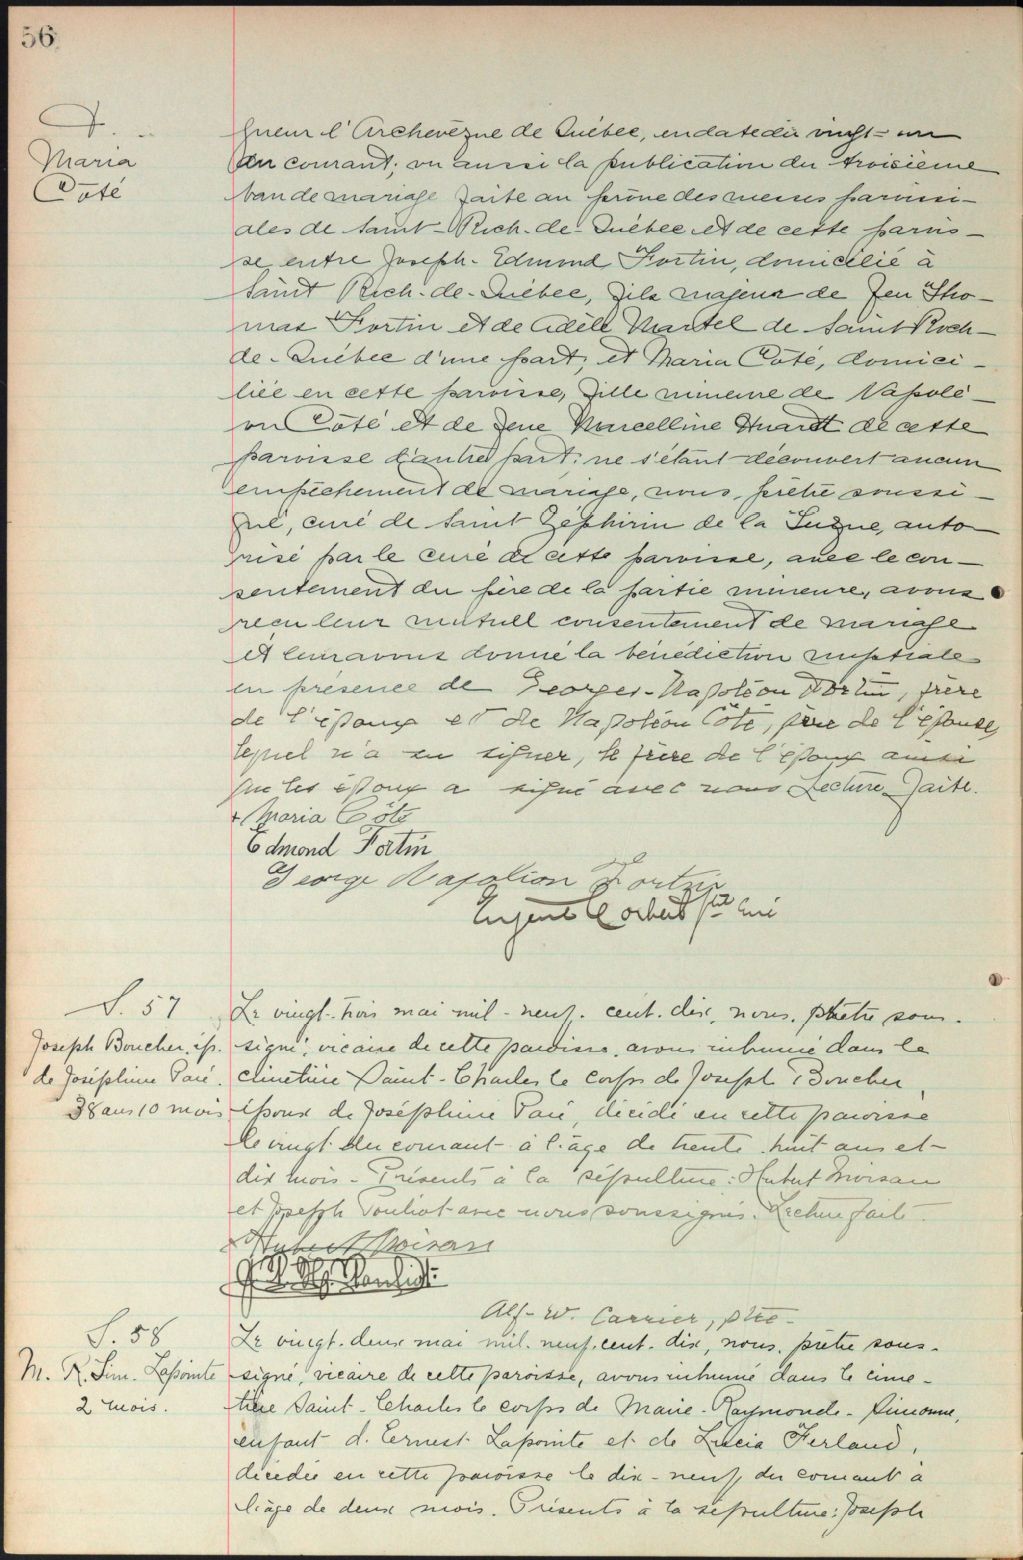 56
&
Maria
Côté
gneur l'Archevêque de Québec, en date du vingt-un
du courant; vu aussi la publication du troisième
ban de mariage faite au prône des messes paroissi-
ales de Saint-Roch-de-Québec et de cette parois-
se entre Joseph-Edmond Fortin, domicilié à
Saint Roch-de-Québec, fils majeur de feu Tho-
mas Fortin et de Adèle Martel de Saint Roch-
de-Québec d'une part; et Maria Côté, domici-
liée en cette paroisse, fille mineure de Napolé-
on Côté et de feue Marcelline Huard de cette
paroisse d'autre part; ne s'étant découvert aucun
empêchement de mariage, nous, prêtre soussi-
gné, curé de Saint Zéphirin de la Tuque, auto-
risé par le curé de cette paroisse, avec le con-
sentement du père de la partie mineure, avons
reçu leur mutuel consentement de mariage
et leur avons donné la bénédiction nuptiale
en présence de Georges-Napoléon Fortin, frère
de l'époux et de Napoléon Côté, père de l'épouse,
lequel n'a su signer, le frère de l'époux ainsi
que les époux a signé avec nous Lecture faite.
+ Maria Côté
Edmond Fortin
George Napoléon Fortin
Eugène Corbeil ptre curé
S. 57
Joseph Boucher, ép.
de Joséphine Paré.
38 ans 10 mois
Le vingt-trois mai mil-neuf-cent-dix, nous, prêtre sous-
signé, vicaire de cette paroisse, avons inhumé dans le
cimetière Saint-Charles le corps de Joseph Boucher,
époux de Joséphine Paré, décédé en cette paroisse
le vingt du courant à l'âge de trente-huit ans et
dix mois. Présents à la sépulture: Hubert Moisan
et Joseph Pouliot avec nous soussignés. Lecture faite.
Hubert Moisan
Pouliot
Alf-W. Carrier, ptre-
S. 58
M. R. Sim. Lapointe
2 mois.
Le vingt-deux mai mil-neuf-cent-dix, nous, prêtre sous-
signé, vicaire de cette paroisse, avons inhumé dans le cime-
tière Saint-Charles le corps de Marie-Raymonde-Simonne,
enfant d'Ernest Lapointe et de Lucia Ferland,
décédée en cette paroisse le dix-neuf du courant à
l'âge de deux mois. Présents à la sépulture: Joseph